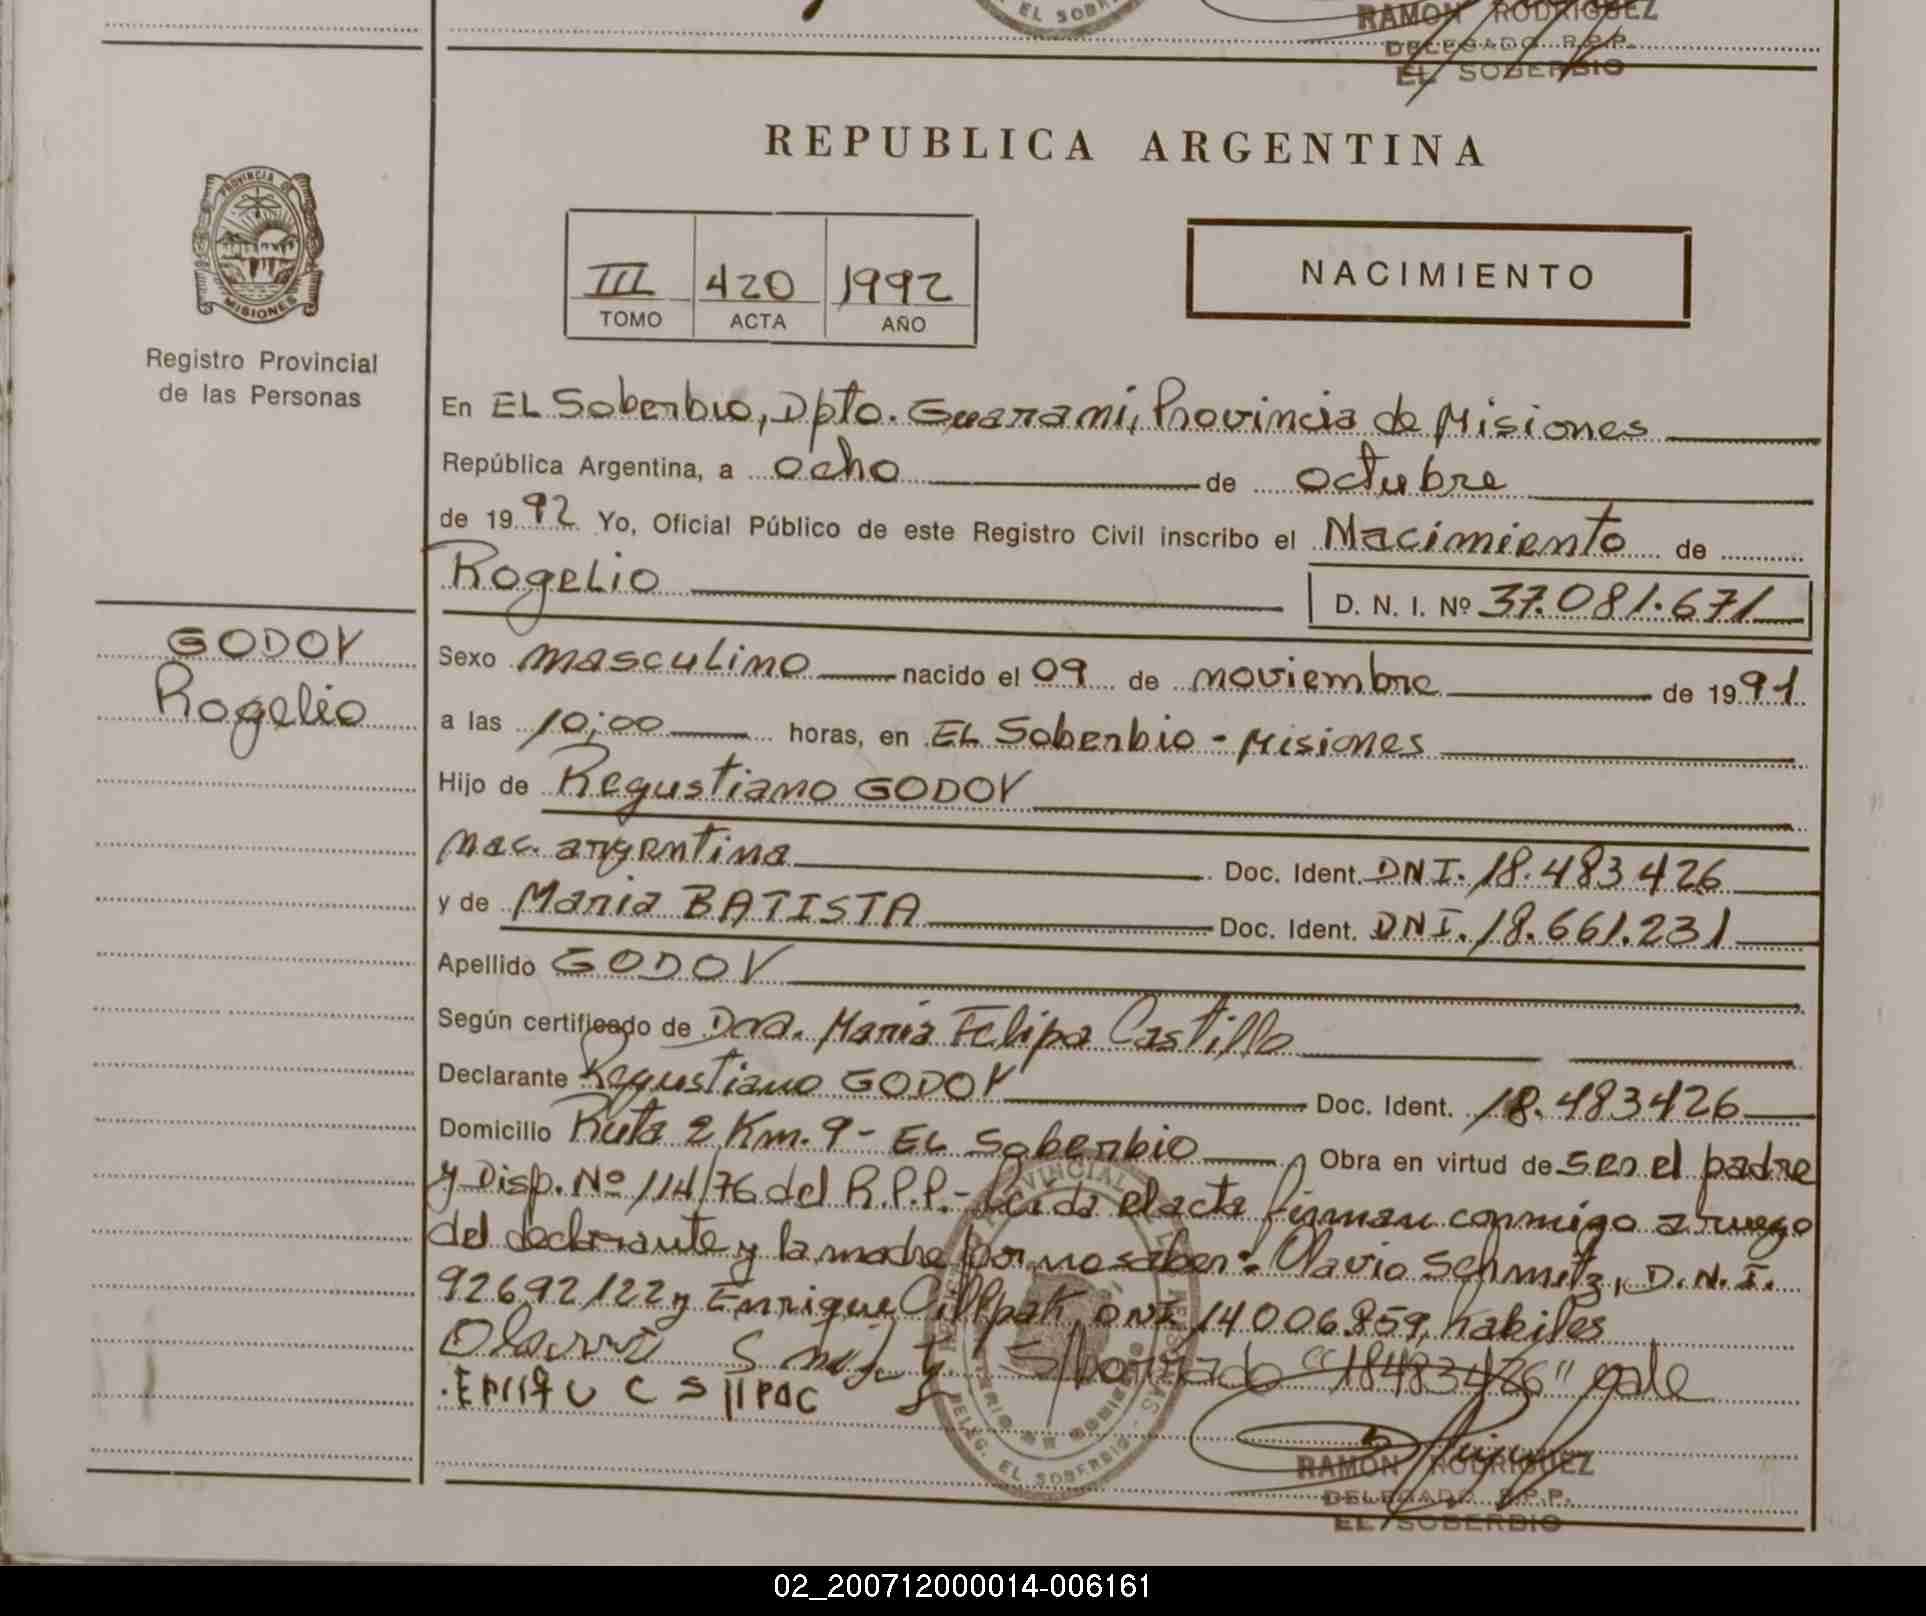 EL SOBER
RAMON RODRIGUEZ
DELEGADO R.P.P.
EL SOBERBIO
REPUBLICA ARGENTINA
PROVINCIA DE
MISIONES
III 420 1992
TOMO ACTA AÑO
NACIMIENTO
Registro Provincial
de las Personas
En EL Soberbio, Dpto. Guarani, Provincia de Misiones
República Argentina, a ocho de octubre
de 1992 Yo, Oficial Público de este Registro Civil inscribo el Nacimiento de
Rogelio D. N. I. Nº 37.081.671
GODOY
Rogelio
Sexo masculino nacido el 09 de noviembre de 1991
a las 10:00 horas, en EL Soberbio - Misiones
Hijo de Regustiano GODOY
nac. argentina Doc. Ident. DNI. 18.483426
y de Maria BATISTA Doc. Ident. DNI. 18.661.231
Apellido GODOY
Según certificado de Dra. Maria Felipa Castillo
Declarante Regustiano GODOY Doc. Ident. 18.483426
Domicilio Ruta 2 Km. 9 - EL Soberbio Obra en virtud de ser el padre
y Disp. Nº 114/76 del R.P.P.- Leida el acta firman conmigo a ruego
del declarante y la madre por no saber: Olavio Schmitz, D.N.I.
92692122 y Enrique DNI 14006.859, habiles
"18483426" vale
PROVINCIAL
DELEG. EL SOBERBIO
RAMON RODRIGUEZ
DELEGADO R.P.P.
EL SOBERBIO
02_200712000014-006161